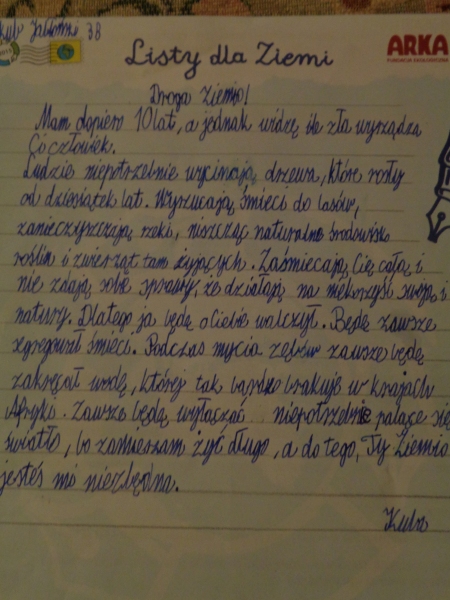 Kuba Jabłoński 3B
Listy dla Ziemi
ARKA
FUNDACJA EKOLOGICZNA
Droga Ziemio!
Mam dopiero 10 lat, a jednak widzę ile zła wyrządza
Ci człowiek.
Ludzie niepotrzebnie wycinają drzewa, które rosły
od dziesiątek lat. Wyrzucają śmieci do lasów,
zanieczyszczają rzeki, niszcząc naturalne środowisko
roślin i zwierząt tam żyjących. Zaśmiecają Cię całą i
nie zdają sobie sprawy, że działają na niekorzyść swoją i
natury. Dlatego ja będę o Ciebie walczył. Będę zawsze
segregował śmieci. Podczas mycia zębów zawsze będę
zakręcał wodę, której tak bardzo brakuje w krajach
Afryki. Zawsze będę wyłączać niepotrzebnie palące się
światło, bo zamierzam żyć długo, a do tego, Ty Ziemio
jesteś mi niezbędna.
Kuba